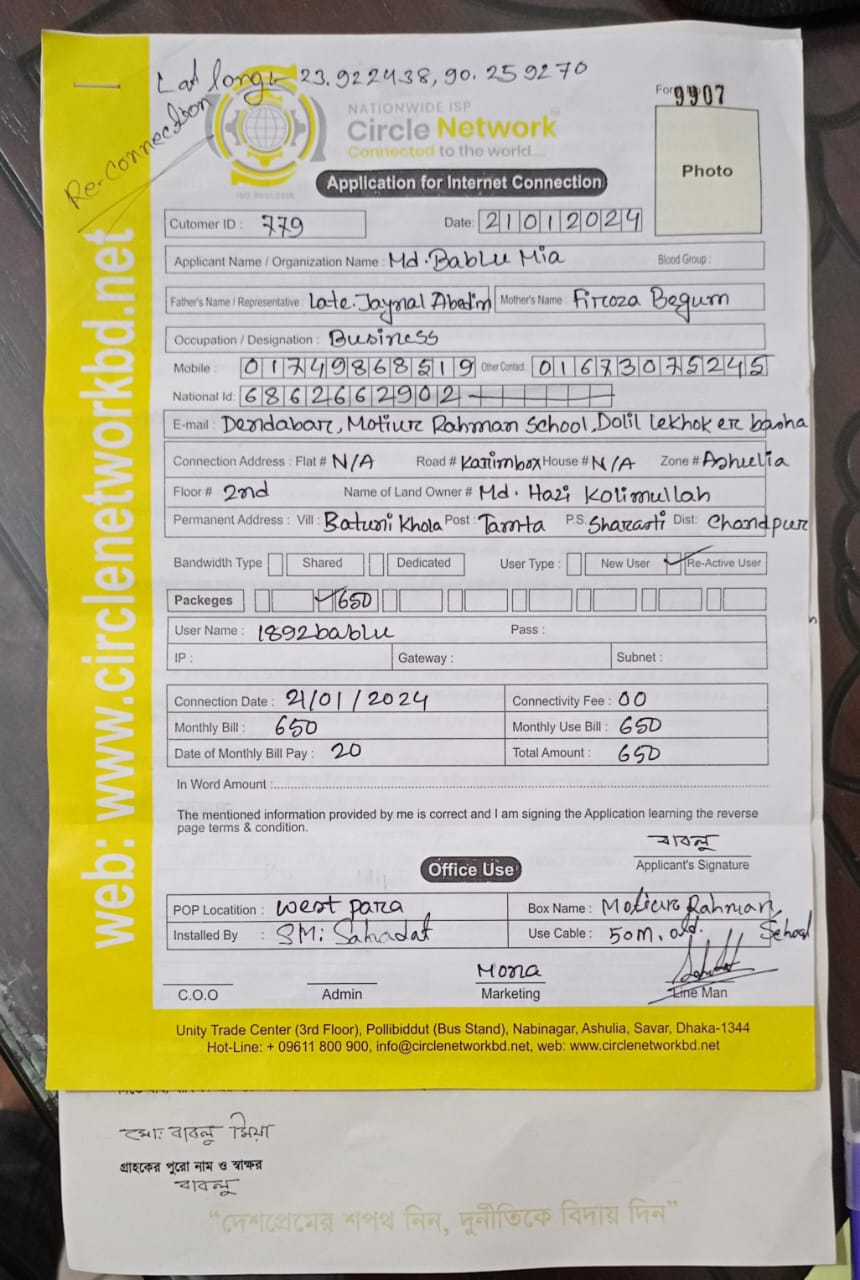 Lat long:- 23.922438, 90.259270
Re-Connection
NATIONWIDE ISP
Circle Network
Connected to the world....
9907
Photo
Application for Internet Connection
Cutomer ID : 779 Date: 21012024
Applicant Name / Organization Name : Md. Bablu Mia Blood Group :
Father's Name / Representative : Late. Jaynal Abedin Mother's Name : Firoza Begum
Occupation / Designation : Business
Mobile : 01749868519 Other Contact : 01673075245
National Id: 6862662902
E-mail : Dendabar, Motiur Rahman School, Dolil lekhok er basha
Connection Address : Flat # N/A Road # Karimbox House # N/A Zone # Ashulia
Floor # 2nd Name of Land Owner # Md. Hazi Kolimullah
Permanent Address : Vill : Batuni Khola Post : Tamta P.S. Sharasti Dist: Chandpur
Bandwidth Type Shared Dedicated User Type : New User Re-Active User
Packeges 650
User Name : 1892bablu Pass :
IP : Gateway : Subnet :
Connection Date : 21/01/2024 Connectivity Fee : 00
Monthly Bill : 650 Monthly Use Bill : 650
Date of Monthly Bill Pay : 20 Total Amount : 650
In Word Amount :
The mentioned information provided by me is correct and I am signing the Application learning the reverse
page terms & condition.
বাবলু
Applicant's Signature
Office Use
POP Locatition : West para Box Name : Motiure Rahman School
Installed By : SM: Sahadat Use Cable : 50m. old.
Mona
C.O.O Admin Marketing Line Man
Unity Trade Center (3rd Floor), Pollibiddut (Bus Stand), Nabinagar, Ashulia, Savar, Dhaka-1344
Hot-Line: + 09611 800 900, info@circlenetworkbd.net, web: www.circlenetworkbd.net
web: www.circlenetworkbd.net
মোঃ বাবলু মিয়া
গ্রাহকের পুরো নাম ও স্বাক্ষর
বাবলু
“দেশপ্রেমের শপথ নিন, দুর্নীতিকে বিদায় দিন”